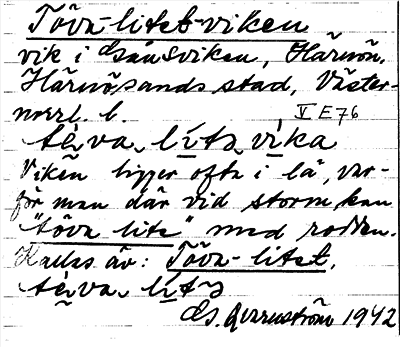 Töva-litet-viken
vik i Gånsviken, Härnön,
Härnösands stad, Väster-
norrl. l.
V E76
tèva lits vika
Viken ligger ofta i lä, var-
för man där vid storm kan
"töva lite" med rodden.
Kallas äv: Töva-litet.
tèva lits
1942